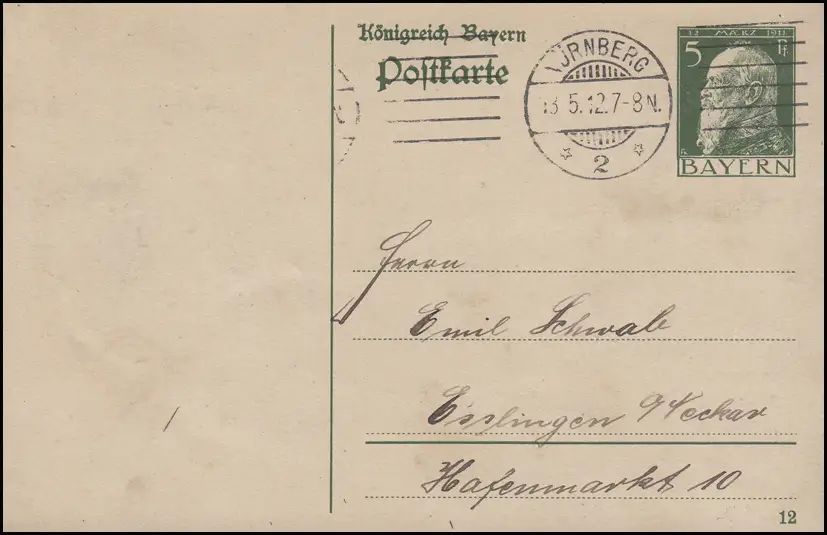 Königreich Bayern
Postkarte
NÜRNBERG
13.5.12.7-8N.
2
12 MÆRZ 1911
5 Pf.
BAYERN
Herrn
Emil Schwab
Esslingen a/Neckar
Hafenmarkt 10
12